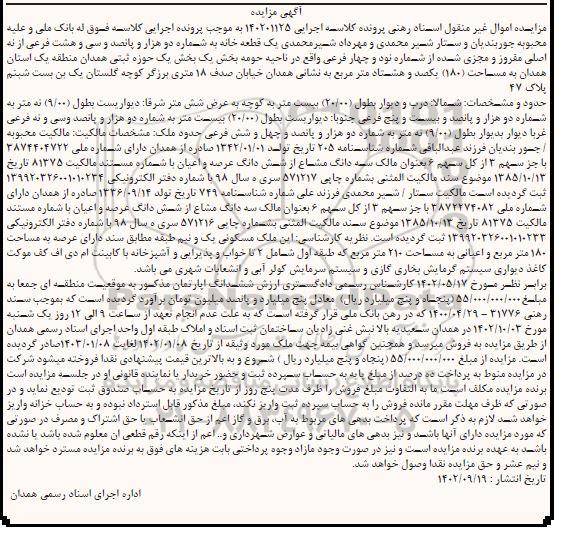 آگهی مزایده
مزایده اموال غیر منقول اسناد رهنی پرونده کلاسه اجرایی ۱۴۰۲۰۱۱۲۵ به موجب پرونده اجرایی کلاسه فوق له بانک ملی و علیه
محبوبه جوربندیان و ستار شیر محمدی و مهرداد شیرمحمدی یک قطعه خانه به شماره دو هزار و پانصد و سی و هشت فرعی از نه
اصلی مفروز و مجزی شده از شماره نود و چهار فرعی واقع در ناحیه حومه بخش یک بخش یک حوزه ثبتی همدان منطقه یک استان
همدان به مساحت (۱۸۰) یکصد و هشتاد متر مربع به نشانی همدان خیابان صدف ۱۸ متری برزگر کوچه گلستان یک بن بست شبنم
پلاک ۴۷
حدود و مشخصات: شمالا: درب و دیوار بطول (۲۰/۰۰) بیست متر به کوچه به عرض شش متر شرقا: دیواریست بطول (۹/۰۰) نه متر به
شماره دو هزار و پانصد و بیست و پنج فرعی جنوبا: دیواریست بطول (۲۰/۰۰) بیست متر به شماره دو هزار و پانصد وسی و نه فرعی
غربا دیوار بدیوار بطول (۹/۰۰) نه متر به شماره دو هزار و پانصد و چهل و شش فرعی حدود ملک: مشخصات مالکیت: مالکیت محبوبه
/ جـور بندیان فرزند عبدالباقی شـماره شناسـنامه ۲۰۵ تاریخ تولـد ۱۳۴۲/۰۱/۰۱ صـادره از همدان دارای شـماره ملی ۳۸۷۴۴۰۴۷۲۲
با جز سـهم ۳ از کل سـهم ۶ بعنوان مالک سـه دانگ مشـاع از شـش دانگ عرصـه و اعیان با شـماره مسـتند مالکیت ۸۱۳۷۵ تاریخ
۱۳۸۵/۱۰/۱۳ موضوع سند مالکیت المثنی بشماره چاپی ۵۷۱۲۱۷ سری ه سال ۹۸ با شماره دفتر الکترونیکی ۱۳۹۹۲۰۳۲۶۰۰۱۰۱۰۲۳۴
ثبت گردیده است مالکیت ستار / شیر محمدی فرزند علی شماره شناسـنامه ۷۴۹ تاریخ تولد ۱۳۳۶/۰۹/۱۴ صادره از همدان دارای
شماره ملی ۳۸۷۲۲۷۴۰۸۲ با جز سهم ۳ از کل سهم ۶ بعنوان مالک سه دانگ مشاع از شش دانگ عرصه و اعیان با شماره مستند
مالکیت ۸۱۳۷۵ تاریخ ۱۳۸۵/۱۰/۱۳ موضوع سـند مالکیت المثنی بشـماره چاپی ۵۷۱۲۱۶ سری ه سال ۹۸ با شماره دفتر الکترونیکی
۱۳۹۹۲۰۳۲۶۰۰۱۰۱۰۲۳۳ ثبت گردیده است. نظریه کارشناسی: این ملک مسکونی یک و نیم طبقه مطابق سند دارای عرصه به مساحت
۱۸۰ متر مربع و اعیانی به مساحت ۲۱۰ متر مربع که طبقه اول شامل ۲ تا خواب و پذیرایی و آشپزخانه با کابینت ام دی اف کف موکت
کاغذ دیواری سیستم گرمایش بخاری گازی و سیستم سرمایش کولر آبی و انشعابات شهری می باشد.
برابـر نظـر مـورخ ۱۴۰۲/۰۵/۱۷ کارشـناس رسـمی دادگسـتری ارزش ششـدانگ آپارتمان مذکـور به موقعیـت منطقـه ای جمعا به
مبلـغ ۵۵/۰۰۰/۰۰۰/۰۰۰ (پنجـاه و پنج میلیارد ریال) معادل پنج میلیارد و پانصد میلیون تومان برآورد گردیده اسـت که بموجب سـند
رهنی ۳۱۷۷۶ - ۱۴۰۰/۰۴/۲۹ که در رهن بانک ملی قرار گرفته است که به علت عدم انجام تعهد از ساعت ۹ الی ۱۲ روز یک شنبه
مورخ ۱۴۰۲/۱۰/۰۳ در همدان_سـعیدیه بالا نبش غنی زادیان ساختمان ثبت اسناد و املاک طبقه اول واحد اجرای اسناد رسمی همدان
از طریق مزایده به فروش میرسد و همچنین گواهی بیمه جهت ملک مورد وثیقه از تاریخ ۱۴۰۲/۰۱/۰۸ لغایت ۱۴۰۳/۰۱/۰۸ صادر گردیده
اسـت. مزایده از مبلغ ۵۵/۰۰۰/۰۰۰/۰۰۰ (پنجاه و پنج میلیارد ریال) شـروع و به بالاترین قیمت پیشنهادی نقدا فروخته میشود شرکت
در مزایده منوط به پرداخت ده درصد از مبلغ پایه به حساب سپرده ثبت و حضور خریدار یا نماینده قانونی او در جلسه مزایده است
برنده مزایده مکلف است ما به التفاوت مبلغ فروش را ظرف مدت پنج روز از تاریخ مزایده به حساب صندوق ثبت تودیع نماید و در
صورتی که ظرف مهلت مقرر مانده فروش را به حساب سپرده ثبت واریز نکند، مبلغ مذکور قابل استرداد نبوده و به حساب خزانه واریز
خواهد شـد لازم به ذکر است که پرداخت بدهی های مربوط به آب، برق و گاز اعم از حق انشـعاب یا حق اشتراک و مصرف در صورتی
که مورد مزایده دارای آنها باشـد و نیز بدهی های مالیاتی و عوارض شـهرداری و.. اعم از اینکه رقم قطعی آن معلوم شـده باشد یا نشده
باشـد به عهده برنده مزایده است و نیز در صورت وجود مازاد وجوه پرداختی بابت هزینه های فوق به برنده مزایده مسترد خواهد شد
و نیم عشر و حق مزایده نقدا وصول خواهد شد.
تاریخ انتشار : ۱۴۰۲/۰۹/۱۹
اداره اجرای اسناد رسمی همدان